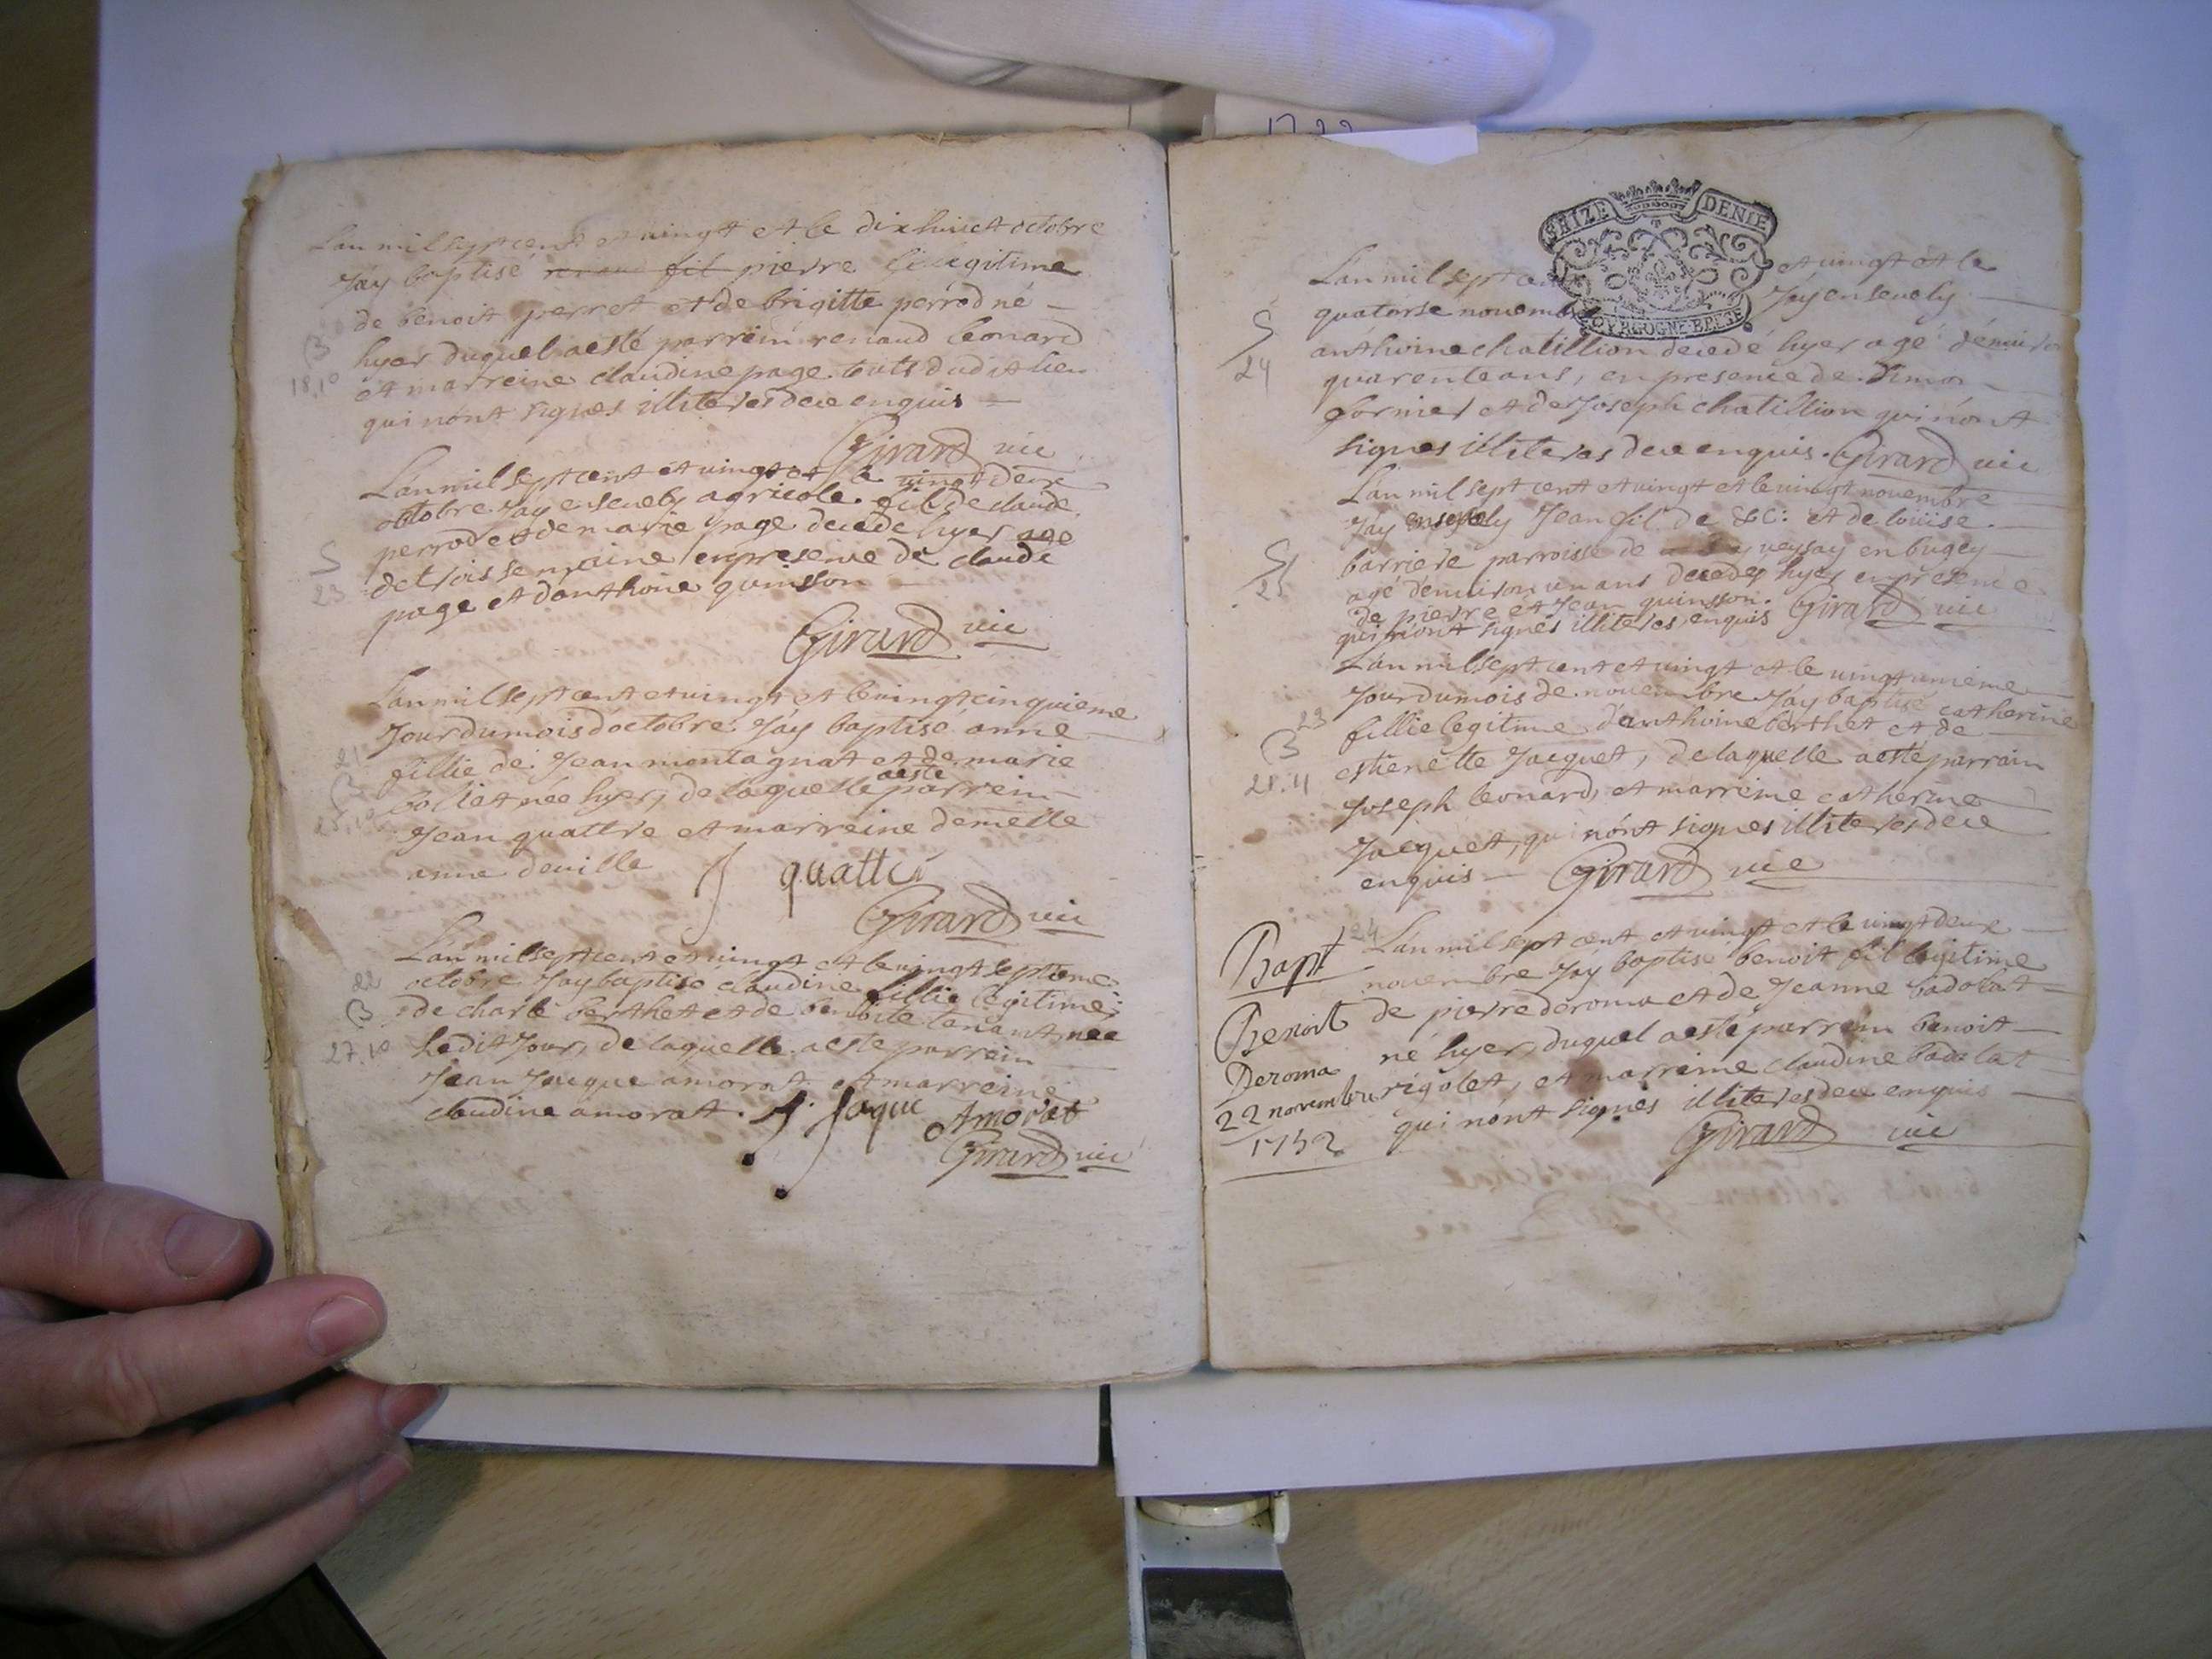 Lan mil sept cent et vingt et le dixhuict octobre
Jay baptisé fil pierre legitime
de benoit perret et de brigitte perrod né
hyer duquel a esté parrein renaud leonard
et marreine claudine page touts dudit lieu
qui nónt signes illiteres de ce enquis
B
18.10
Girard vic
Lán mil sept cent et vingt et le vingt deux
octobre Jay ensevely agricole fil de claude
perrod et de marie page decede hyer agé
de trois semaine en presence de claude
page et danthoine quinsson
S
23
Girard vic
Lán mil sept cent et vingt et le vingt cinquieme
Jour du mois d'octobre Jáy baptisé anne
fillie de Jean montagnat et de marie
née hyer, de laquelle a esté parrein
Jean quattre et marreine demelle
anne deville
21
B
25.10
J quattre
Girard vic
Lán mil sept cent et vingt et le vingt septieme
octobre Jay baptisé claudine fillie legitime
de charle berthet et de benoite tenant née
ledit Jour, de laquelle a este parrein
Jean Jacque amorat et marreine
claudine amorat.
22
B
27.10
J. Jaque Amorat
Girard vic
1722
SEIZE DENIE
BOURGOGNE BRESSE
Lan mil sept cent et vingt et le
quatorse novembre Jay ensevely
anthoine chatillion decedé hyer agé démiron
quarente ans, en presence de Simon
fornier et de Joseph chatillion qui nónt
signes illiteres de ce enquis. Girard vic
S
24
Lán mil sept cent et vingt et le vingt novembre
Jáy ensevely Jean fil de &c: et de loüise
barriere parroisse de veysay en bugey
agé démiron un ans decedes hyer en presence
de pierre et Jean quinsson.
qui nónt signés illiteres enquis Girard vic
S
25
Lán mil sept cent et vingt et le vingt unieme
Jour du mois de novembre Jáy baptisé catherine
fillie legitime d'anthoine berthet et de
estienette Jacquet, de laquelle a esté parrain
Joseph leonard, et marreine catherine
Jacquet, qui nónt signes illiteres de ce
enquis Girard vic
23
B
21.11
24
Lán mil sept cent et vingt et le vingt deux
novembre Jáy baptisé benoit fil legitime
de pierre deroma et de Jeanne badolat
né hyer, duquel a esté parrein benoit
rigolet, et marreine claudine badolat
qui nónt signes illiteres de ce enquis
Girard vic
Bapt
Benoit
Deroma
22 novembre
1752